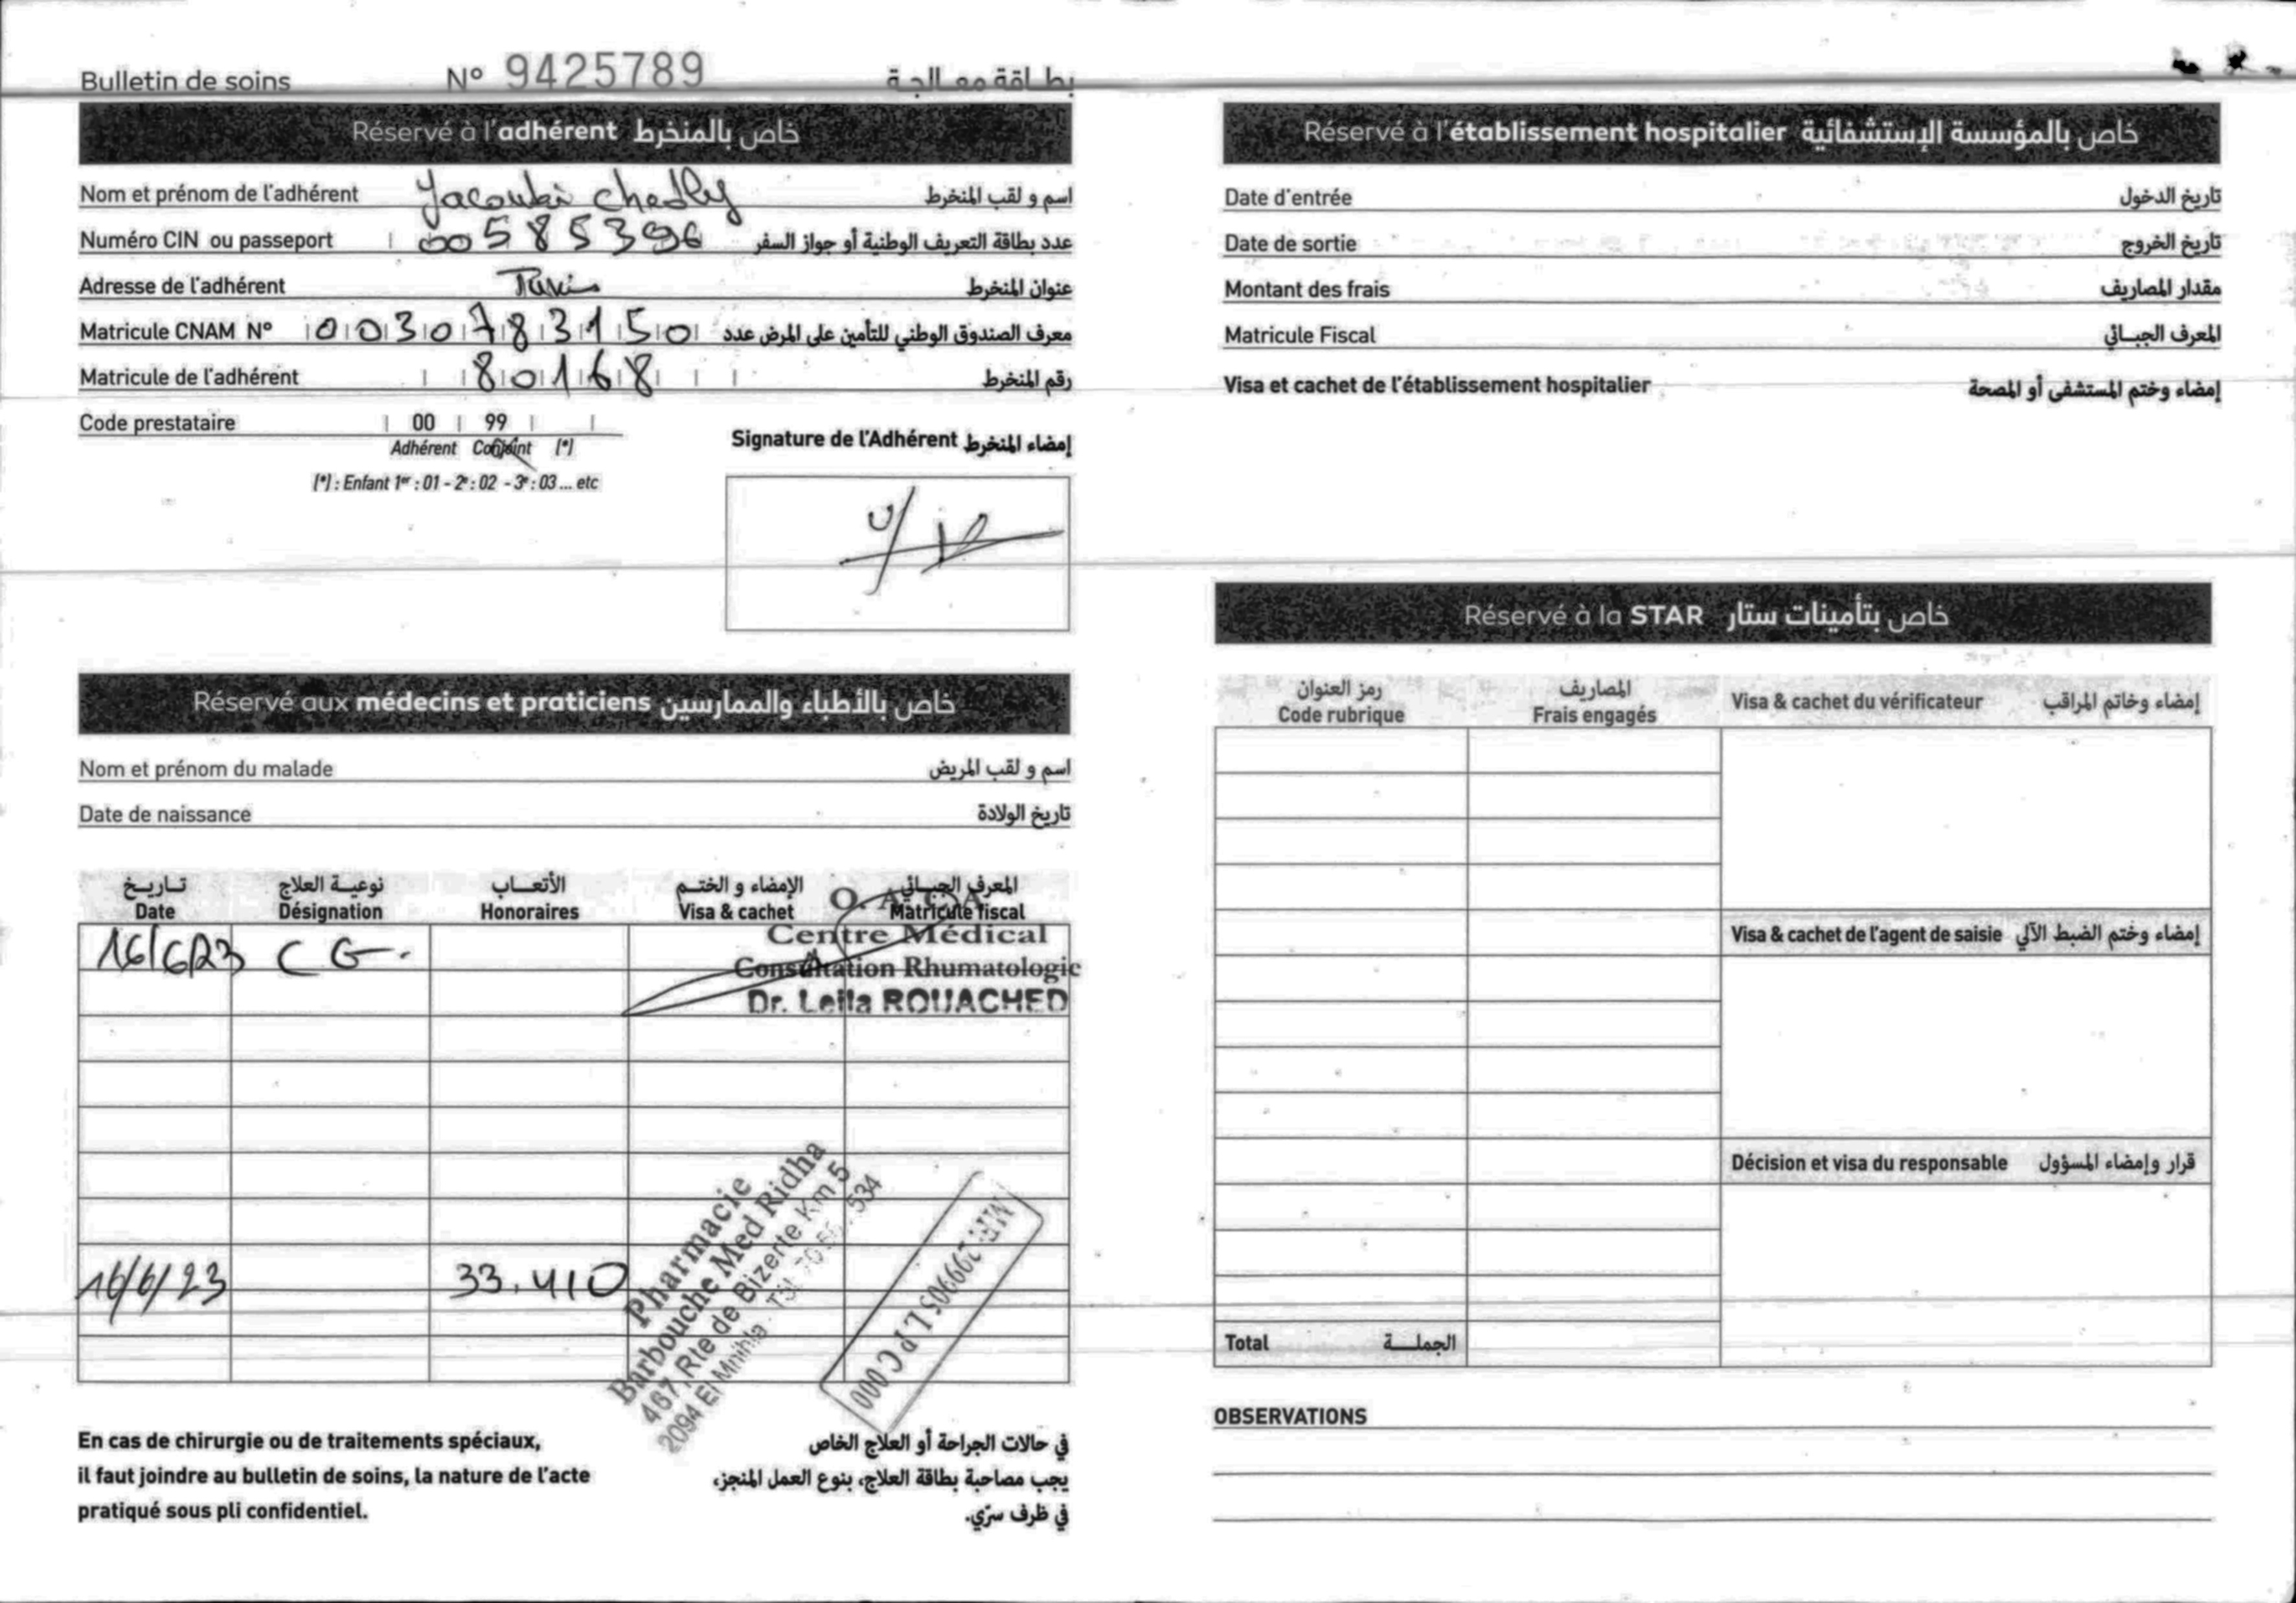 Bulletin de soins N° 9425789 بطاقة معالجة
Réservé à l'adhérent خاص بالمنخرط
Nom et prénom de l'adhérent Yacoubi Chedly اسم و لقب المنخرط
Numéro CIN ou passeport 00585396 عدد بطاقة التعريف الوطنية أو جواز السفر
Adresse de l'adhérent Tunis عنوان المنخرط
Matricule CNAM N° 0030783150 معرف الصندوق الوطني للتأمين على المرض عدد
Matricule de l'adhérent 80168 رقم المنخرط
Code prestataire 00 99
Adhérent Conjoint (*)
(*) : Enfant 1er : 01 - 2e : 02 - 3e : 03 ... etc
Signature de l'Adhérent إمضاء المنخرط
Réservé aux médecins et praticiens خاص بالأطباء والممارسين
Nom et prénom du malade اسم و لقب المريض
Date de naissance تاريخ الولادة
تاريخ نوعية العلاج الأتعاب الإمضاء و الختم المعرف الجبائي
Date Désignation Honoraires Visa & cachet Matricule fiscal
16/6/23 CG.
Centre Médical
Consultation Rhumatologie
Dr. Leila ROUACHED
16/6/23 33.410
Pharmacie
Barbouche Med Ridha
467, Rte de Bizerte Km 5
2094 El Mnihla
En cas de chirurgie ou de traitements spéciaux,
il faut joindre au bulletin de soins, la nature de l'acte
pratiqué sous pli confidentiel.
في حالات الجراحة أو العلاج الخاص
يجب مصاحبة بطاقة العلاج، بنوع العمل المنجز،
في ظرف سرّي.
Réservé à l'établissement hospitalier خاص بالمؤسسة الإستشفائية
Date d'entrée تاريخ الدخول
Date de sortie تاريخ الخروج
Montant des frais مقدار المصاريف
Matricule Fiscal المعرف الجبائي
Visa et cachet de l'établissement hospitalier إمضاء وختم المستشفى أو المصحة
Réservé à la STAR خاص بتأمينات ستار
رمز العنوان المصاريف
Code rubrique Frais engagés Visa & cachet du vérificateur إمضاء وخاتم المراقب
Visa & cachet de l'agent de saisie إمضاء وختم الضبط الآلي
Décision et visa du responsable قرار وإمضاء المسؤول
Total الجملة
OBSERVATIONS